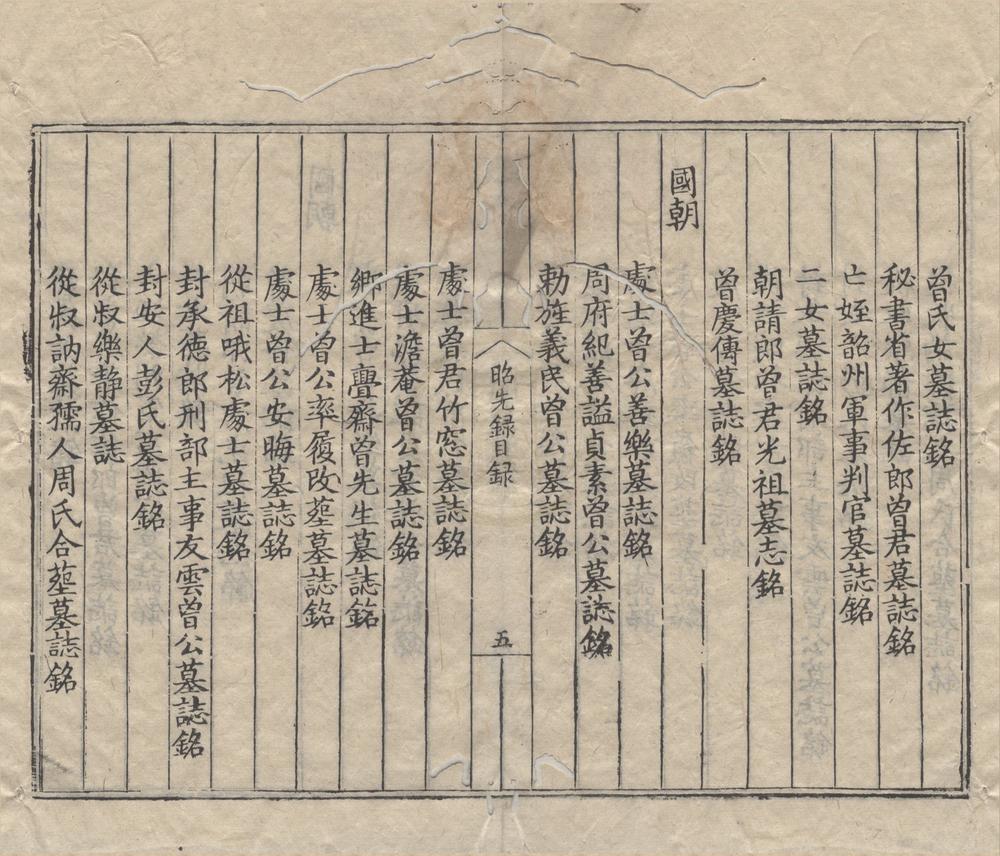 曾氏女墓誌銘
秘書省著作佐郎曾君墓誌銘
亡姪韶州軍事判官墓誌銘
二女墓誌銘
朝請郎曾君光祖墓志銘
曾慶傳墓誌銘
國朝
處士曾公善樂墓誌銘
周府紀善謚貞素曾公墓誌銘
勅旌義民曾公墓誌銘
昭先録目録
五
處士曾君竹窓墓誌銘
處士澹菴曾公墓誌銘
鄉進士亹齋曾先生墓誌銘
處士曾公率履改塟墓誌銘
處士曾公安晦墓誌銘
從祖哦松處士墓誌銘
封承德郎刑部主事友雲曾公墓誌銘
封安人彭氏墓誌銘
從叔樂静墓誌
從叔訥齋孺人周氏合塟墓誌銘